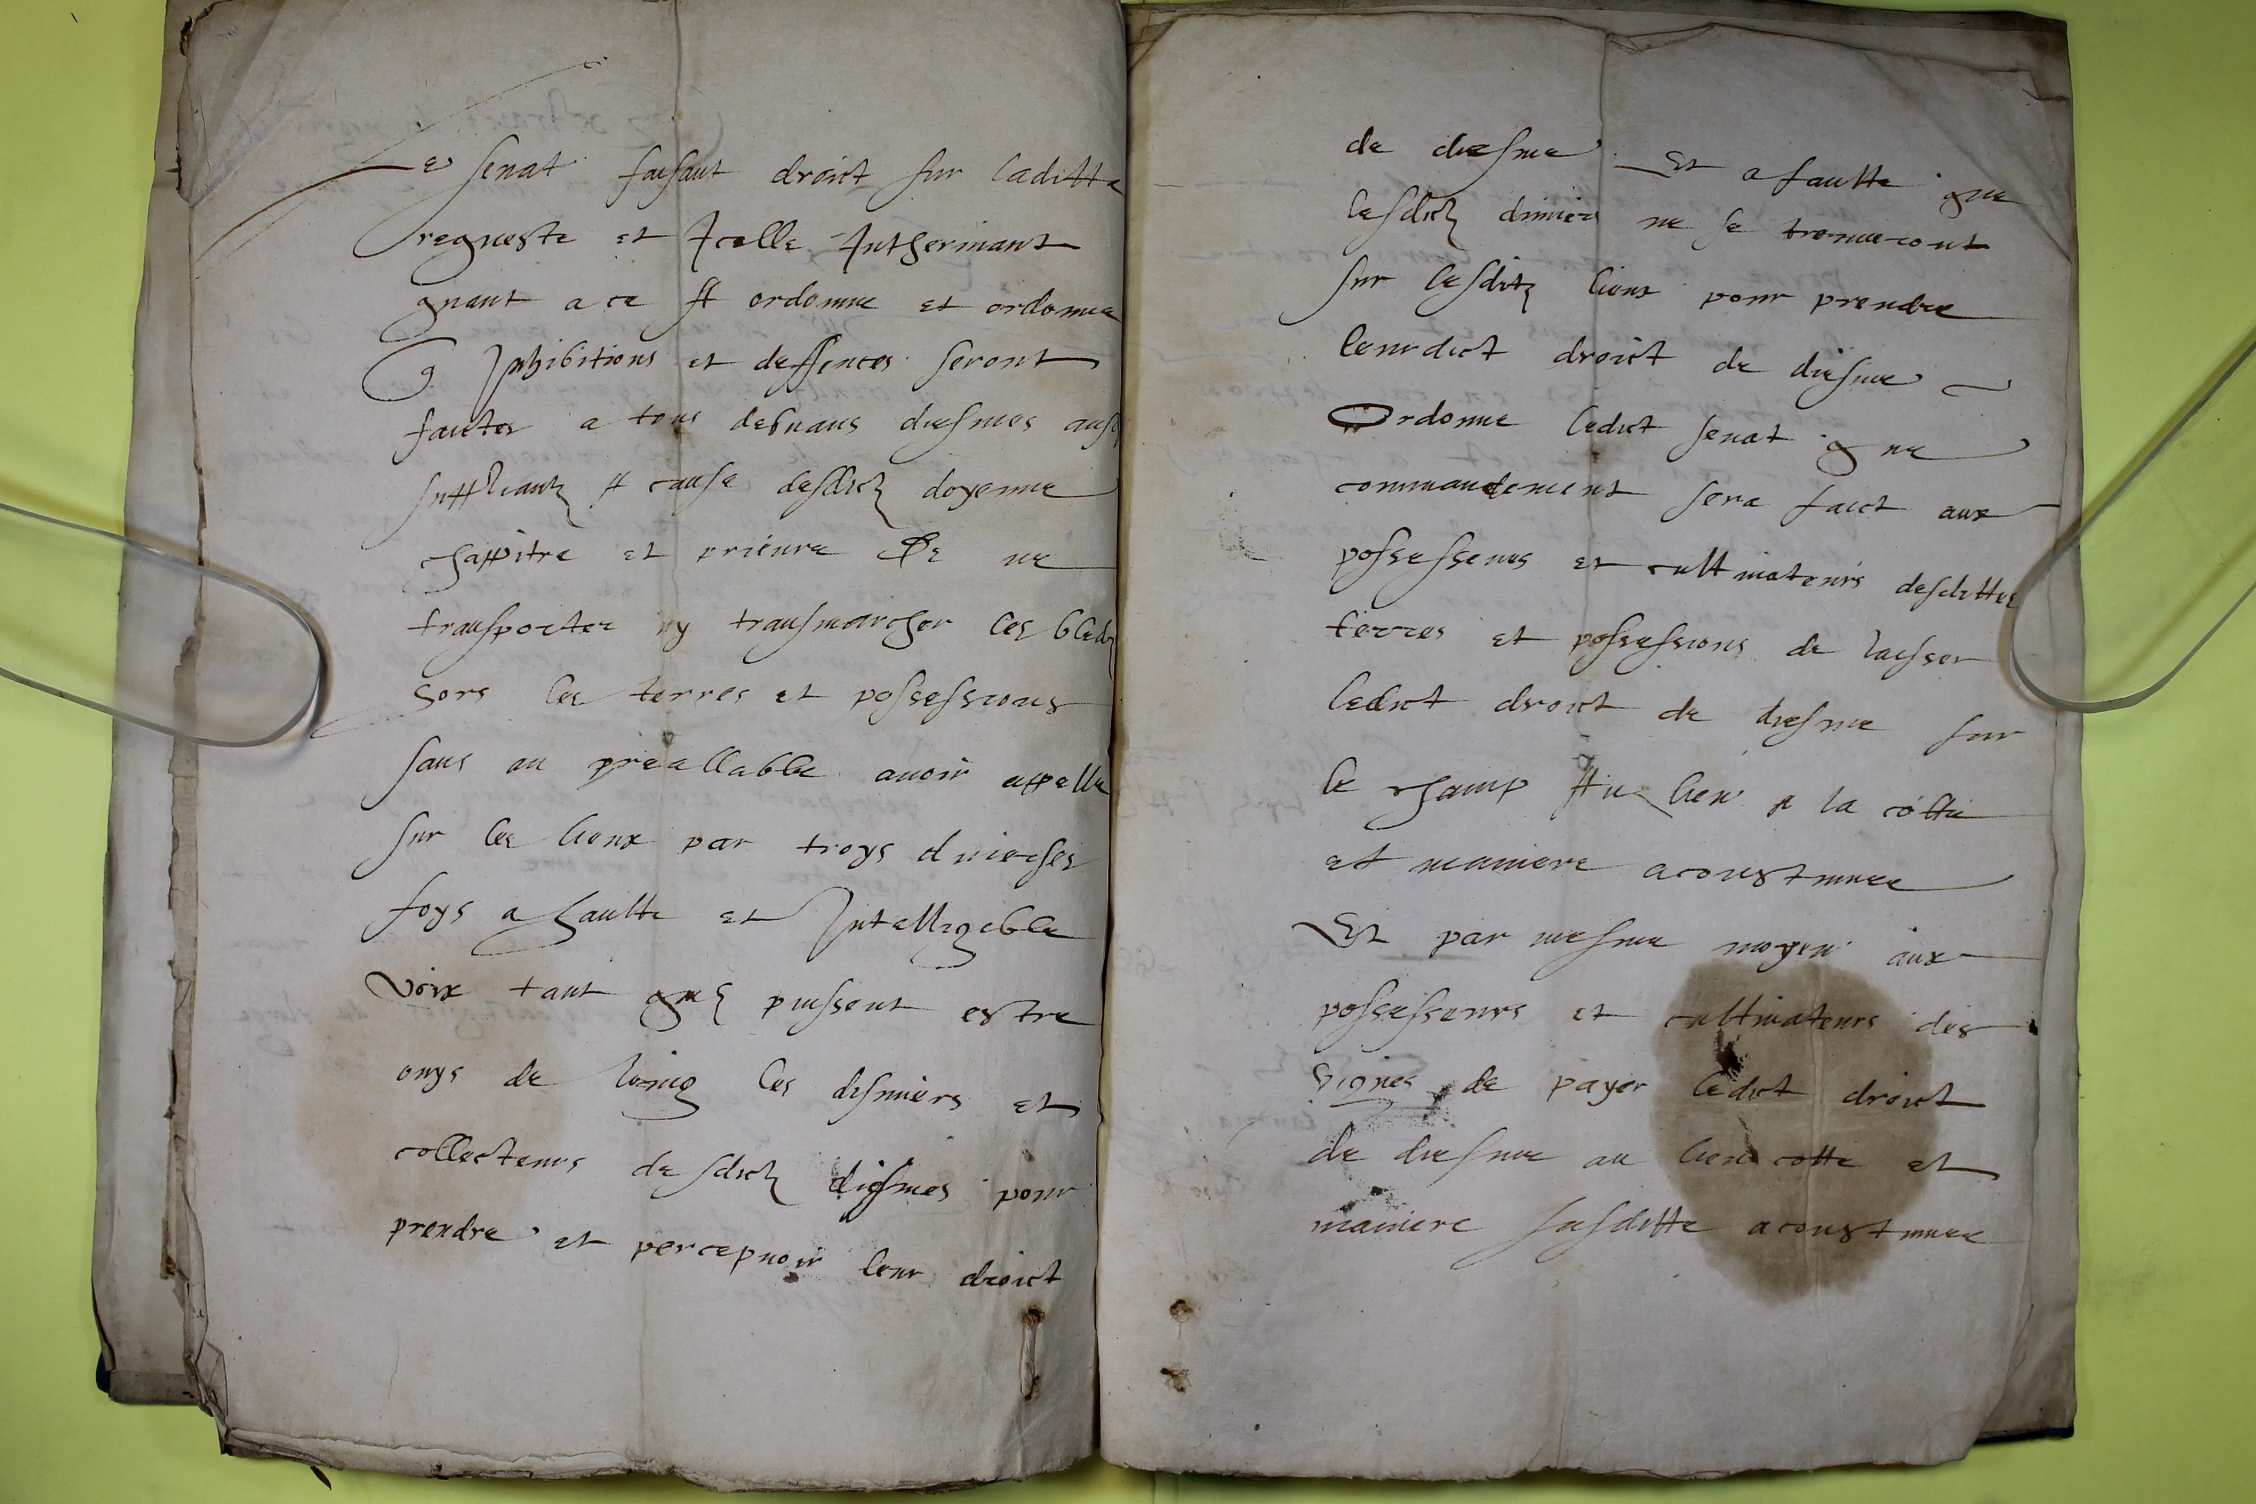 Le senat faisant droict sur laditte
requeste et Icelle Intherinant
quant a ce A ordonne et ordonne
q Inhibitions et deffences seront
faictes a tous debuans diesmes aus
suppliantz A cause desdictz doyenne
chappitre et prieure De ne
transporter ny transmarcher les bledz
hors les terres et possessions
sans au preallable auoir appelle
sur les lieux par troys diuerses
foys a haulte et Intelligible
voix tant quilz puissent estre
ouys de loing les dismiers et
collecteurs desdictz diesmes pour
prendre et percepuoir leur droict
de diesme Et a faulte que
lesdictz dimiers ne se trouueront
sur lesditz lieux pour prendre
leurdict droict de diesme
Ordonne ledict senat que
commandement sera faict aux
possesseurs et cultiuateurs desdittes
terres et possessions de laisser
ledict droict de diesme sur
le champ Au lieu a la cotte
et maniere acoustumee
Et par mesme moyen aux
possesseurs et cultiuateurs des
vignes de payer ledict droict
de diesme au lieu cotte et
maniere susditte acoustumee